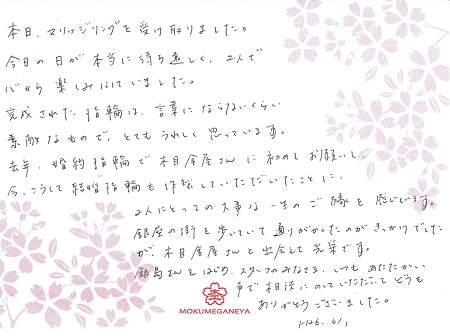 本日、マリッジリングを受け取りました。
今日の日が本当に待ち遠しく、2人で
心から楽しみにしていました。
完成された指輪は、言葉にならないくらい
素敵なもので、とてもうれしく思っています。
去年、婚約指輪で木目金屋さんに初めてお願いし、
今、こうして結婚指輪も作製していただいたことに、
2人にとっての大事な一生のご縁を感じています。
銀座の街を歩いていて通りがかったのがきっかけでした
が、木目金屋さんと出会えて光栄です。
さんをはじめ、スタッフのみなさま、いつもあたたかい
声で相談にのっていただいてどうも
ありがとうございました。
MOKUMEGANEYA